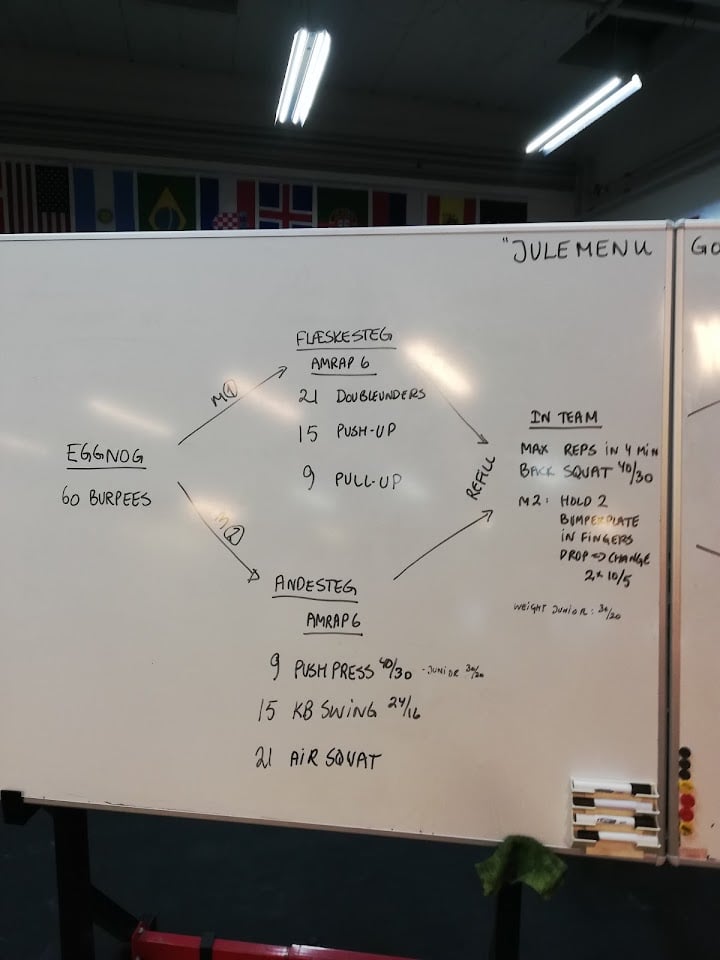 "JULEMENU
GO
EGGNOG
60 BURPEES
M①
M②
FLÆSKESTEG
AMRAP 6
21 DOUBLEUNDERS
15 PUSH-UP
9 PULL-UP
ANDESTEG
AMRAP 6
9 PUSH PRESS 40/30 - JUNIOR 30/20
15 KB SWING 24/16
21 AIR SQUAT
REFILL
IN TEAM
MAX REPS IN 4 MIN
BACK SQUAT 40/30
M2: HOLD 2
BUMPERPLATE
IN FINGERS
DROP => CHANGE
2x 10/5
WEIGHT JUNIOR: 30/20